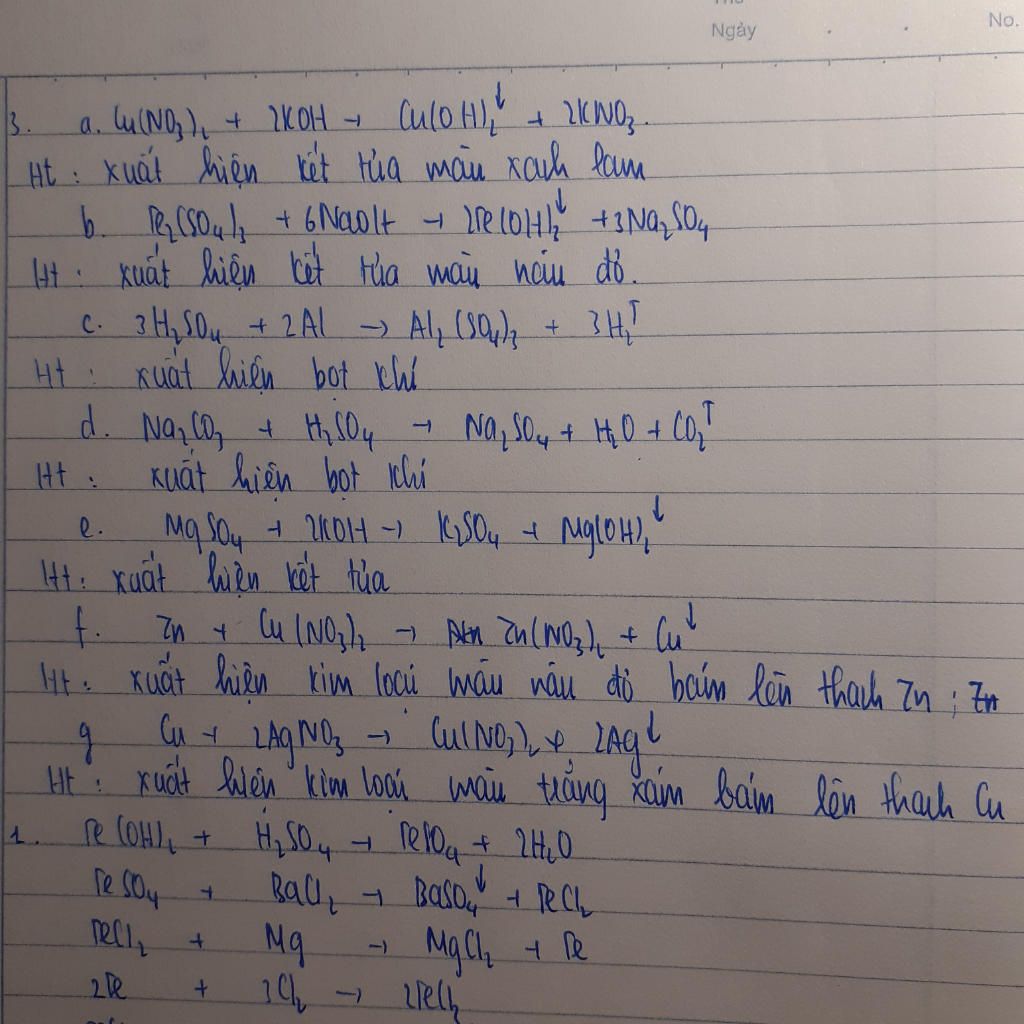 Ngày
No.
3. a. Cu(NO₃)₂ + 2KOH → Cu(OH)₂↓ + 2KNO₃.
Ht : xuất hiện kết tủa màu xanh lam
b. Fe₂(SO₄)₃ + 6NaOH → 2Fe(OH)₃↓ + 3Na₂SO₄
Ht : xuất hiện kết tủa màu nâu đỏ.
c. 3H₂SO₄ + 2Al → Al₂(SO₄)₃ + 3H₂↑
Ht : xuất hiện bọt khí
d. Na₂CO₃ + H₂SO₄ → Na₂SO₄ + H₂O + CO₂↑
Ht : xuất hiện bọt khí
e. MgSO₄ + 2KOH → K₂SO₄ + Mg(OH)₂↓
Ht : xuất hiện kết tủa
f. Zn + Cu(NO₃)₂ → Zn(NO₃)₂ + Cu↓
Ht : xuất hiện kim loại màu nâu đỏ bám lên thanh Zn ; Zn
g Cu + 2AgNO₃ → Cu(NO₃)₂ + 2Ag↓
Ht : xuất hiện kim loại màu trắng xám bám lên thanh Cu
1. Fe(OH)₂ + H₂SO₄ → FeSO₄ + 2H₂O
FeSO₄ + BaCl₂ → BaSO₄↓ + FeCl₂
FeCl₂ + Mg → MgCl₂ + Fe
2Fe + 3Cl₂ → 2FeCl₃